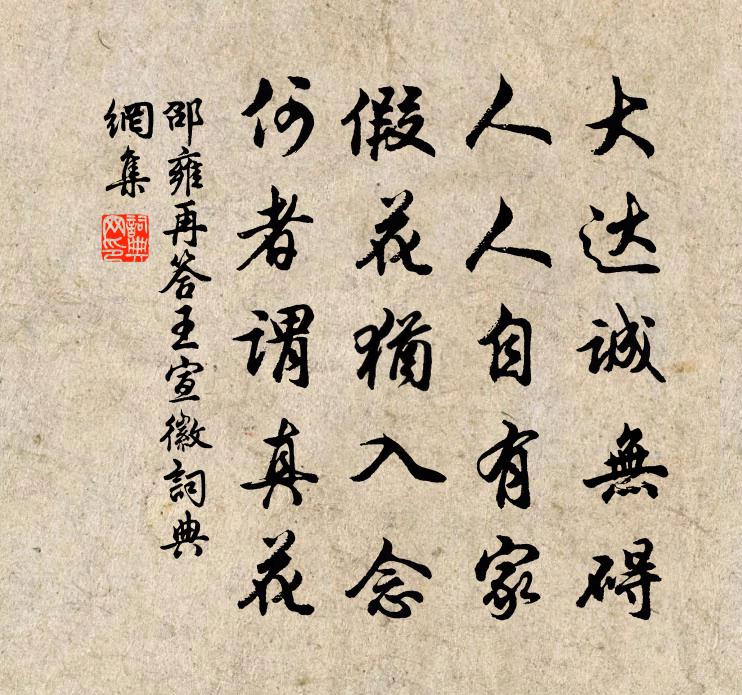 大达誠無碍
人人自有家
假花猶入念
何者謂真花
邵雍再答王宣徽詞典
網集
詞典
网印